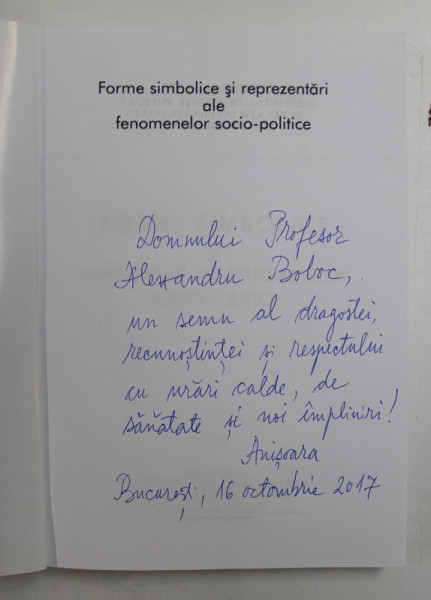 Forme simbolice și reprezentări
ale
fenomenelor socio-politice
Domnului Profesor
Alexandru Boboc,
un semn al dragostei,
recunoștinței și respectului
cu urări calde, de
sănătate și noi împliniri!
Anișoara
București, 16 octombrie 2017